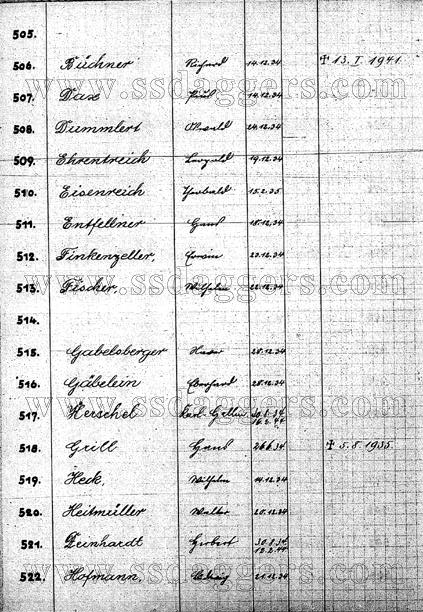 505.
506. Büchner Richard 14.12.34 ✝ 13. I. 1941.
507. Dax Paul 14.12.34
www.ssdaggers.com
508. Dummlert Oswald 24.12.34
509. Ehrentreich Leopold 19.12.34
510. Eisenreich 15.2.35
511. Entfellner Hans 18.12.34
512. Finkenzeller, Erwin 23.12.34
www.ssdaggers.com
513. Fischer, Wilhelm 22.12.34
514.
515. Gabelsberger 28.12.34
516. Gäbelein Eberhard 28.12.34
www.ssdaggers.com
517. Herschel Karl 30.8.34
16.2.44
518. Grill Hans 26.6.34 ✝ 5.8.1935.
519. Heck, Wilhelm 14.12.34
520. Heitmüller Walter 20.12.34
521. Deinhardt Herbert 30.8.34
12.2.44
522. Hofmann, Ludwig 21.12.34